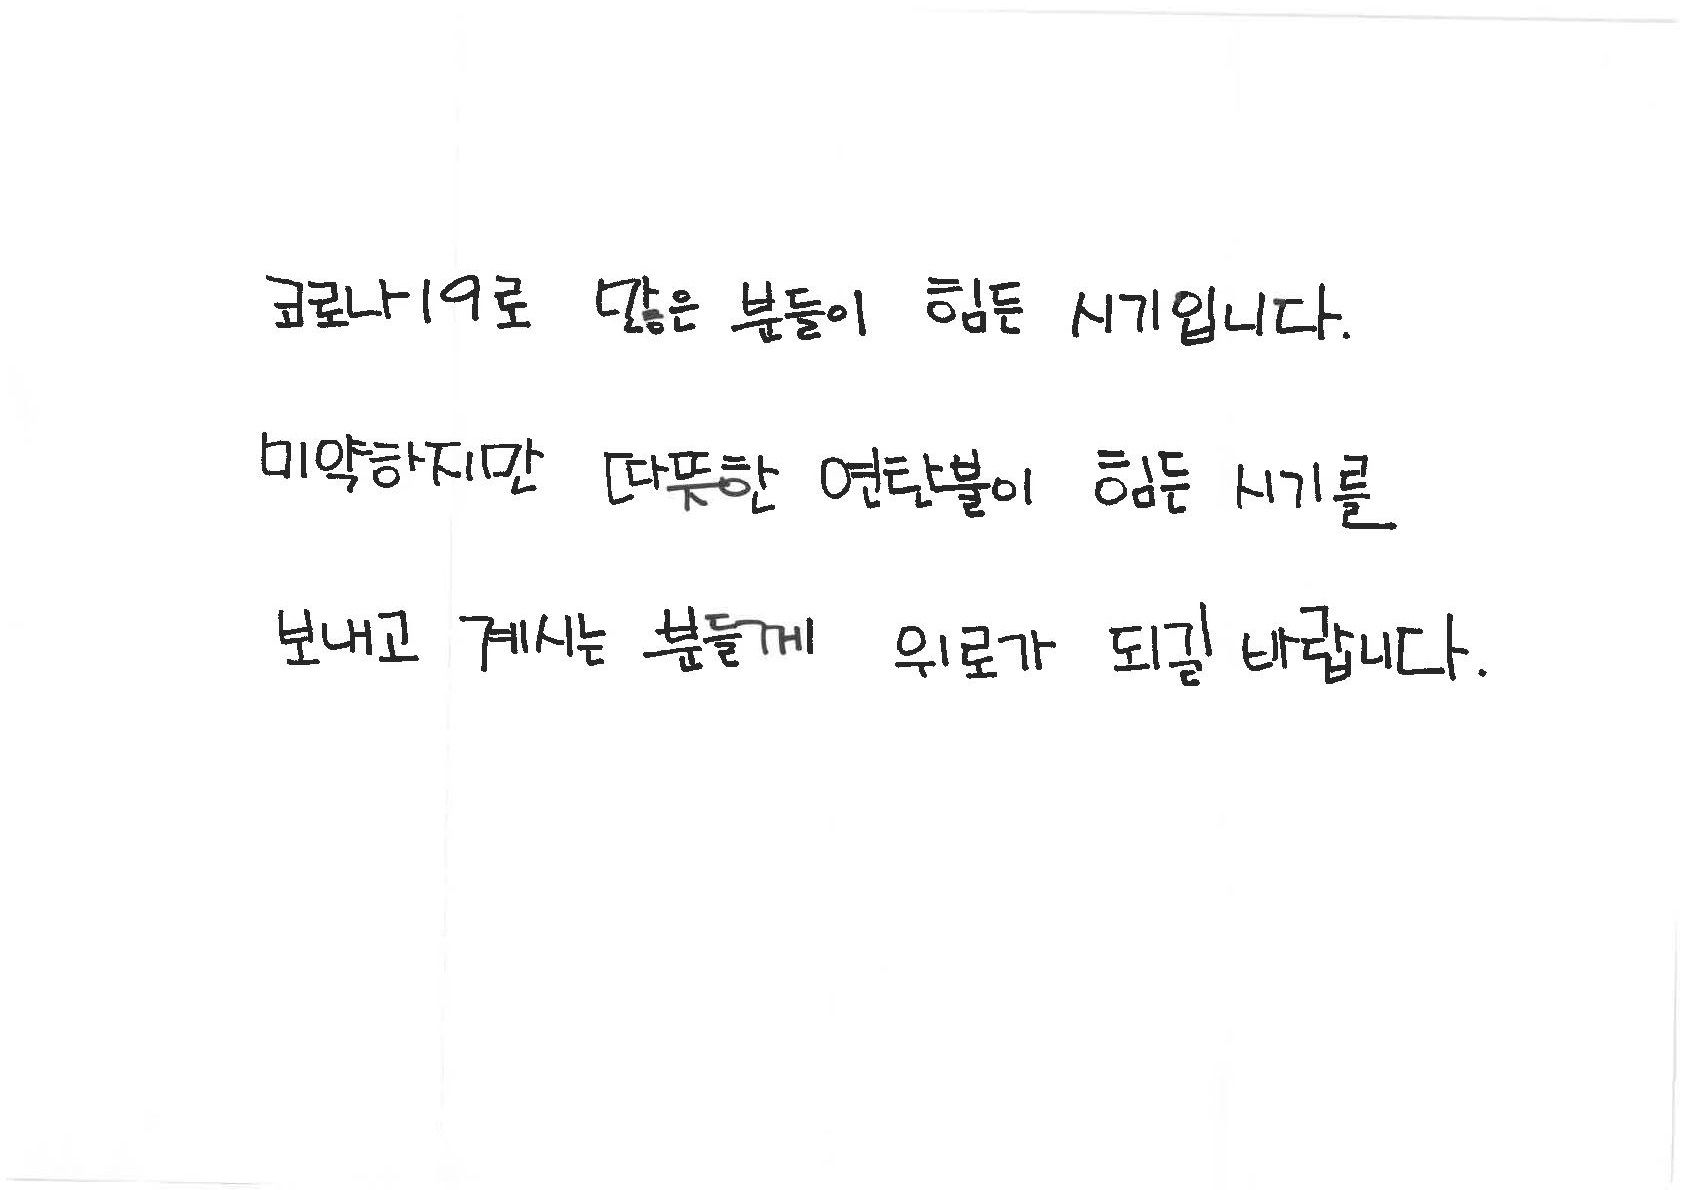 코로나19로 많은 분들이 힘든 시기입니다.
미약하지만 따뜻한 연탄불이 힘든 시기를
보내고 계시는 분들께 위로가 되길 바랍니다.